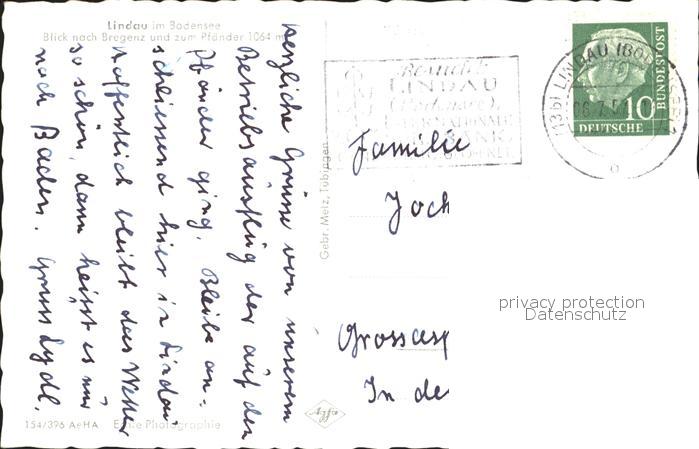 Lindau im Bodensee
Blick nach Bregenz und zum Pfänder 1064 m
Herzliche Grüsse von unserem
Betriebsausflug der auf den
Pfänder ging. Bleibe an-
scheinend hier in Lindau
Hoffentlich bleibt das Wetter
so schön, dann heisst es nur
noch Baden. Gruss Lydl.
154/396 AeHA Echte Photographie
Gebr. Metz, Tübingen
Agfa
Besucht
LINDAU
(Bodensee),
INTERNATIONALE
BANK
(13b) LINDAU (BODENSEE)
10
DEUTSCHE
BUNDESPOST
Familie
Joch
Grossasp
In de
privacy protection
Datenschutz